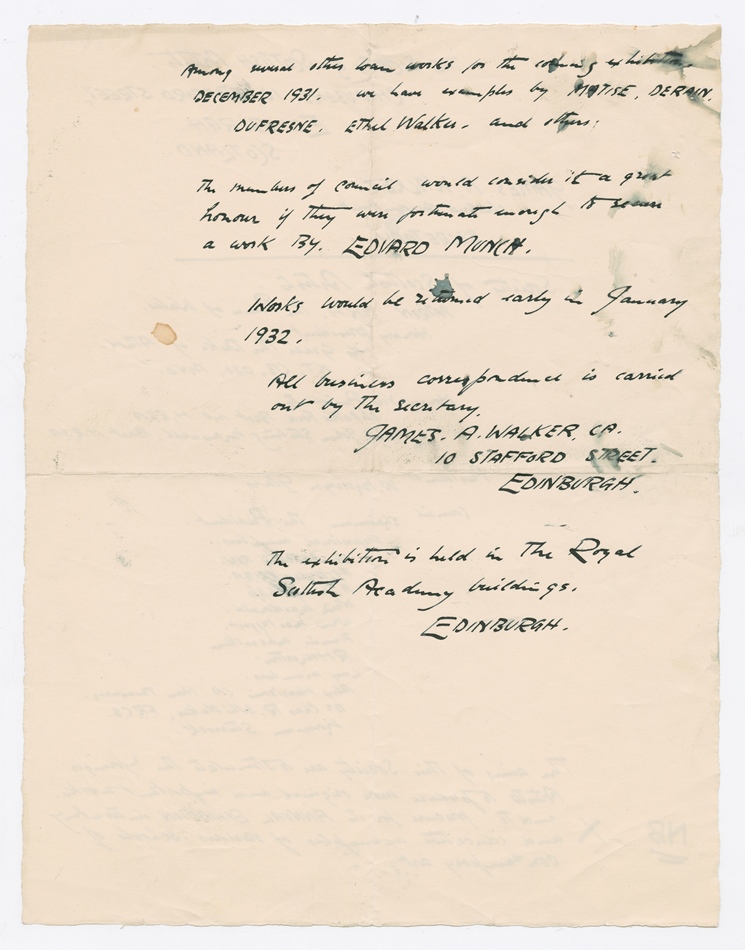 Among several other loan works for the coming exhibition.
DECEMBER 1931. we have examples by MATISE, DERAIN,
DUFRESNE, Ethel Walker. and others;
The members of council would consider it a great
honour if they were fortunate enough to secure
a work BY. EDVARD MUNCH.
Works would be returned early in January
1932.
All business correspondence is carried
out by the secretary,
JAMES. A. WALKER, CA.
10 STAFFORD STREET.
EDINBURGH.
The exhibition is held in The Royal
Scottish Academy buildings.
EDINBURGH.